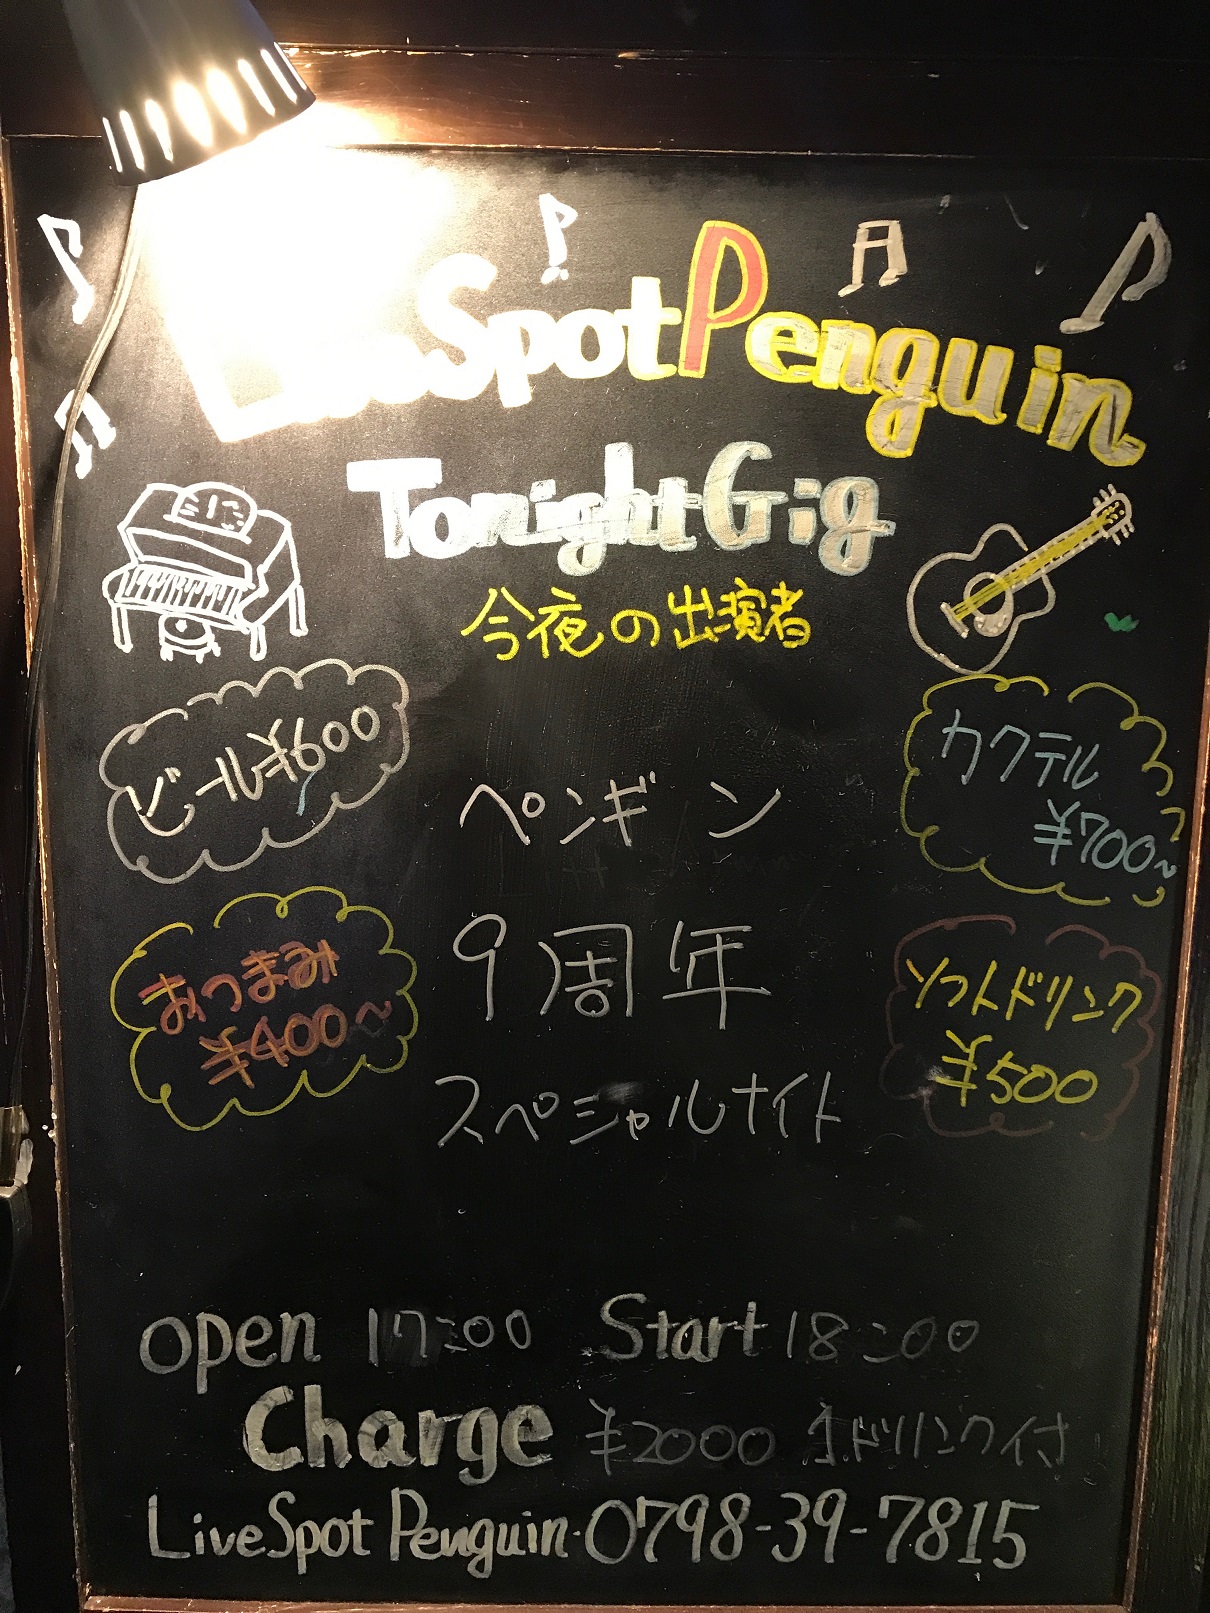 Live Spot Penguin
Tonight Gig
今夜の出演者
ビール¥600
カクテル
¥700~
ペンギン
おつまみ
¥400~
9周年
ソフトドリンク
¥500
スペシャルナイト
open 17:00 Start 18:00
Charge ¥2000 1ドリンク付
Live Spot Penguin・0798-39-7815